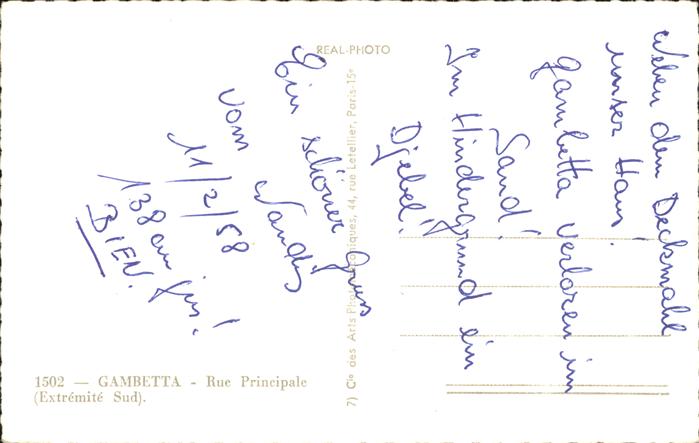 REAL-PHOTO
Neben dem Deckmahl
unser Haus!
Gambetta verloren im
Sand!
Im Hindergrund ein
Djebel!
Ein schöner Gruss
vom
11/2/58
138 am
BIEN.
7) Cie des Arts Photomécaniques, 44, rue Letellier, Paris-15e
1502 — GAMBETTA - Rue Principale
(Extrémité Sud).